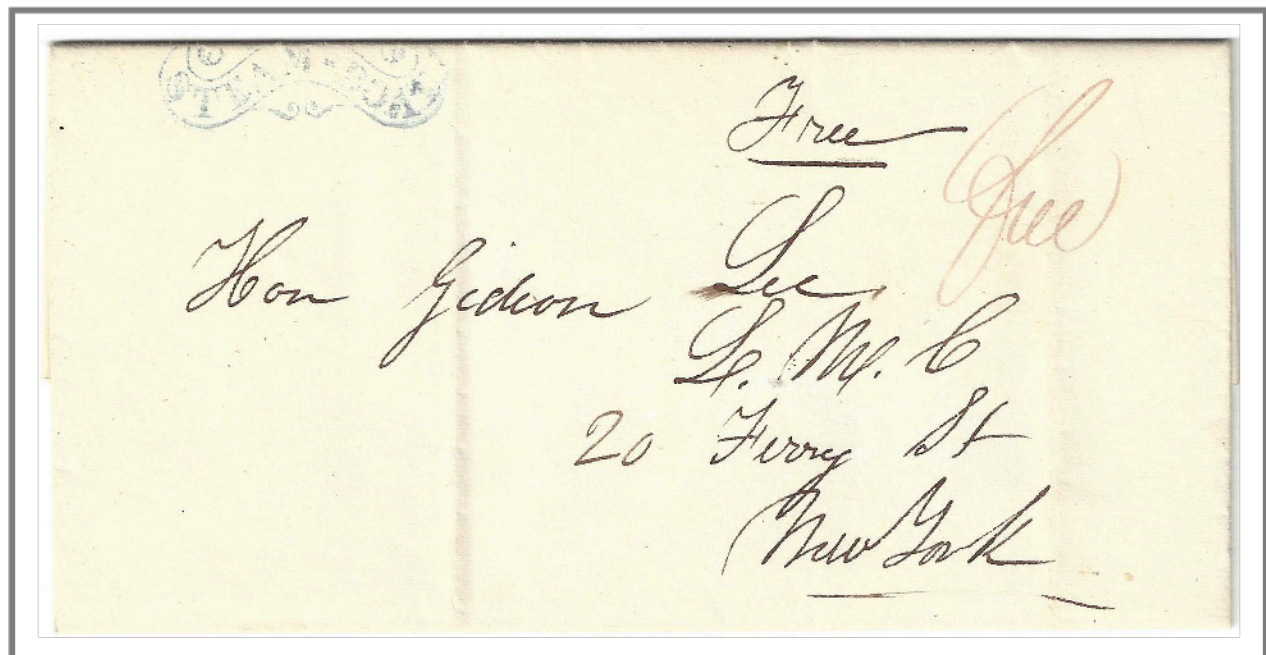 STEAM-BOAT
Free
free
Hon Gideon Lee
L. M. C
20 Ferry St
New York